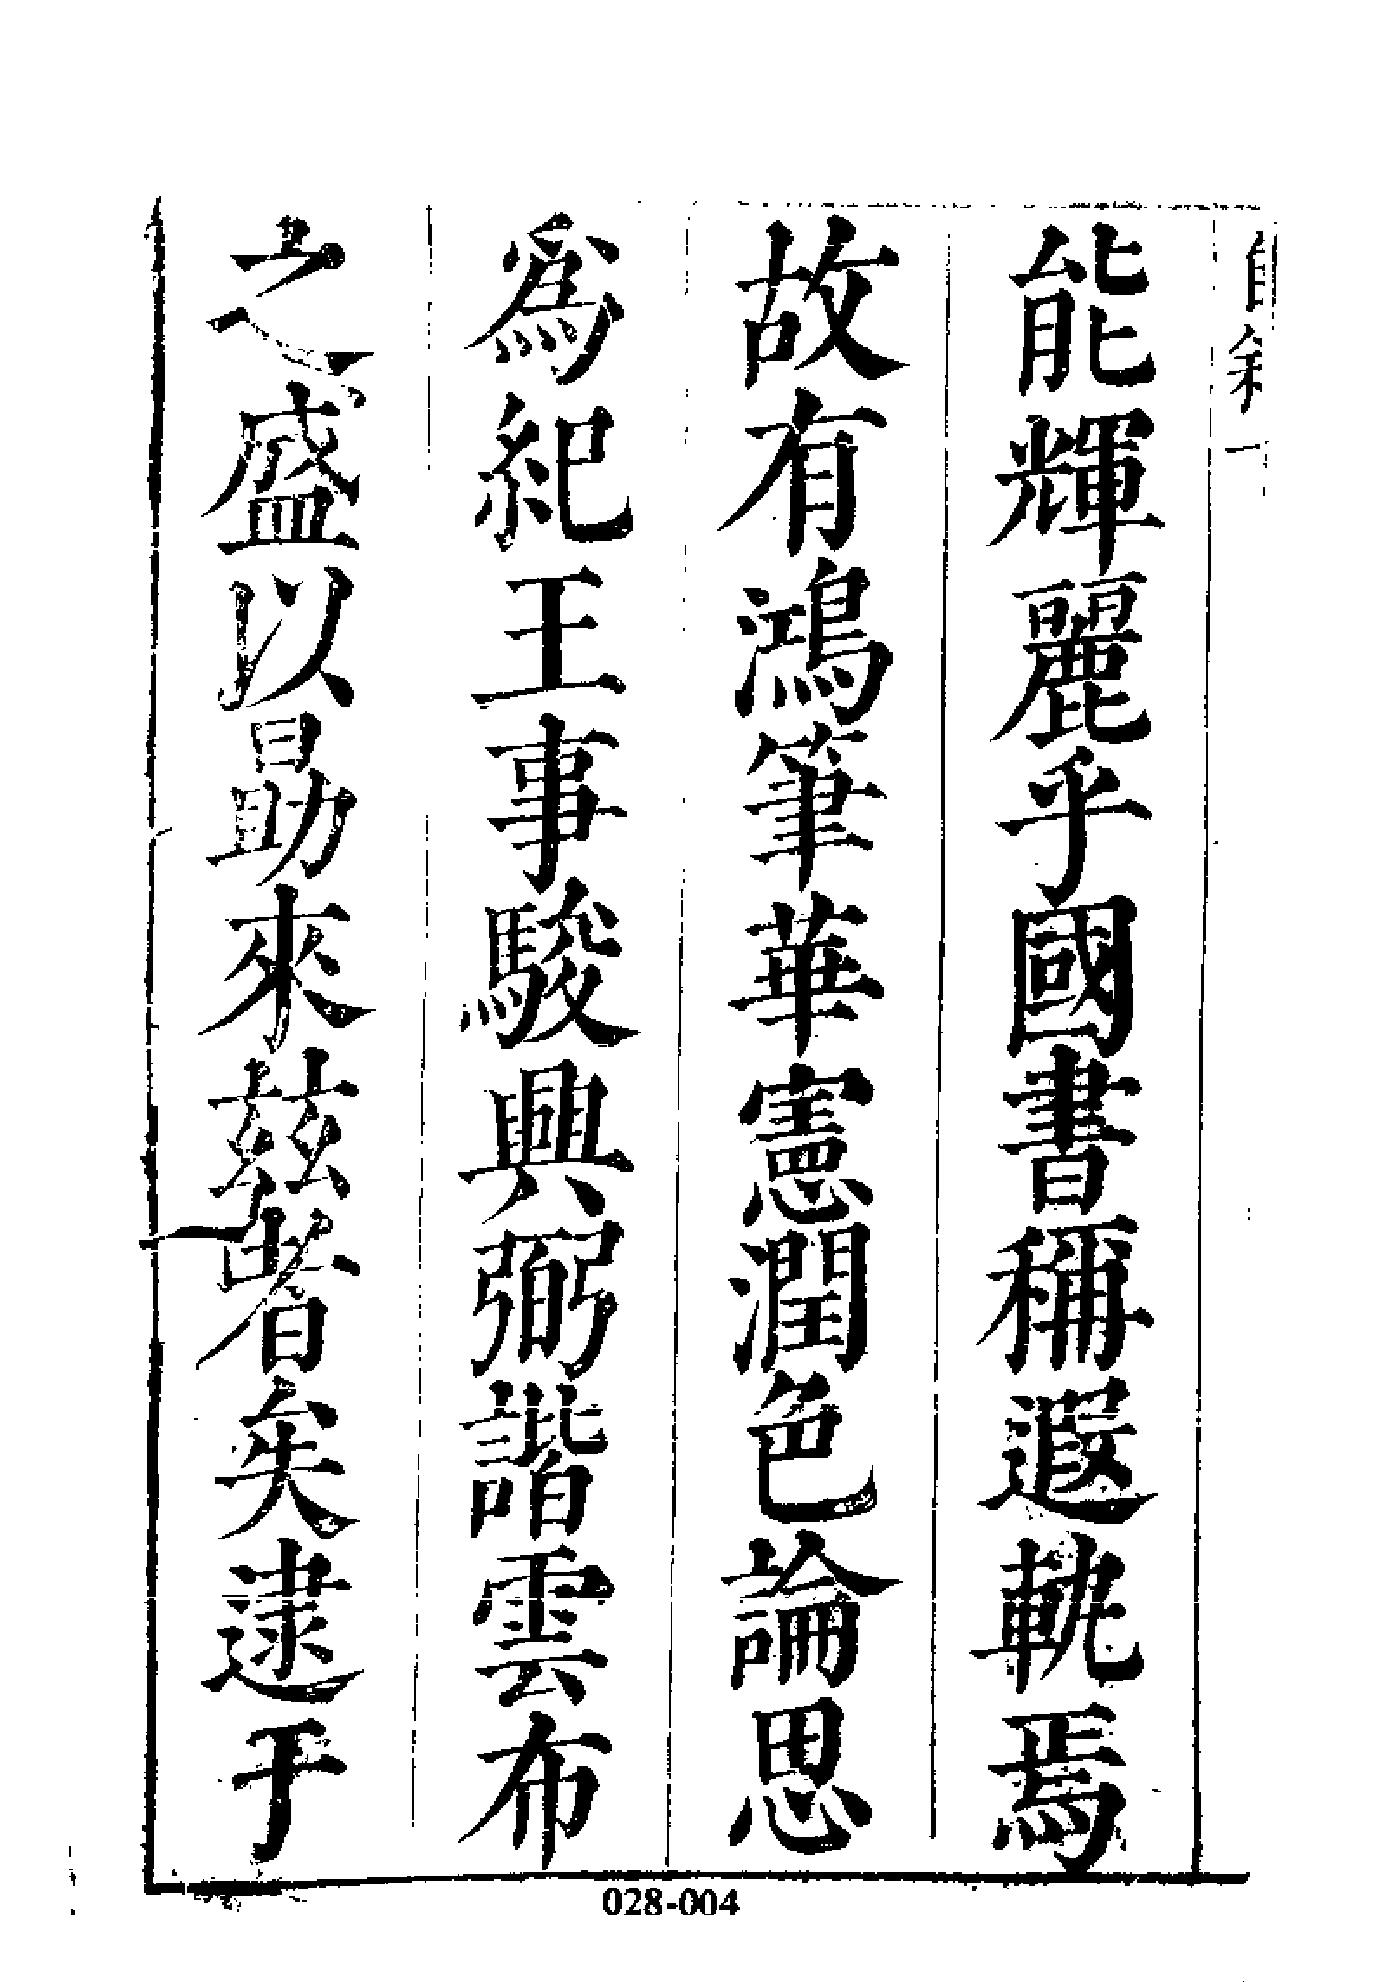 能輝麗乎國書稱遐軌焉
故有鴻筆華憲潤色論思
為紀王事駿興弼諧雲布
之盛以勗來茲者矣逮于
028-004